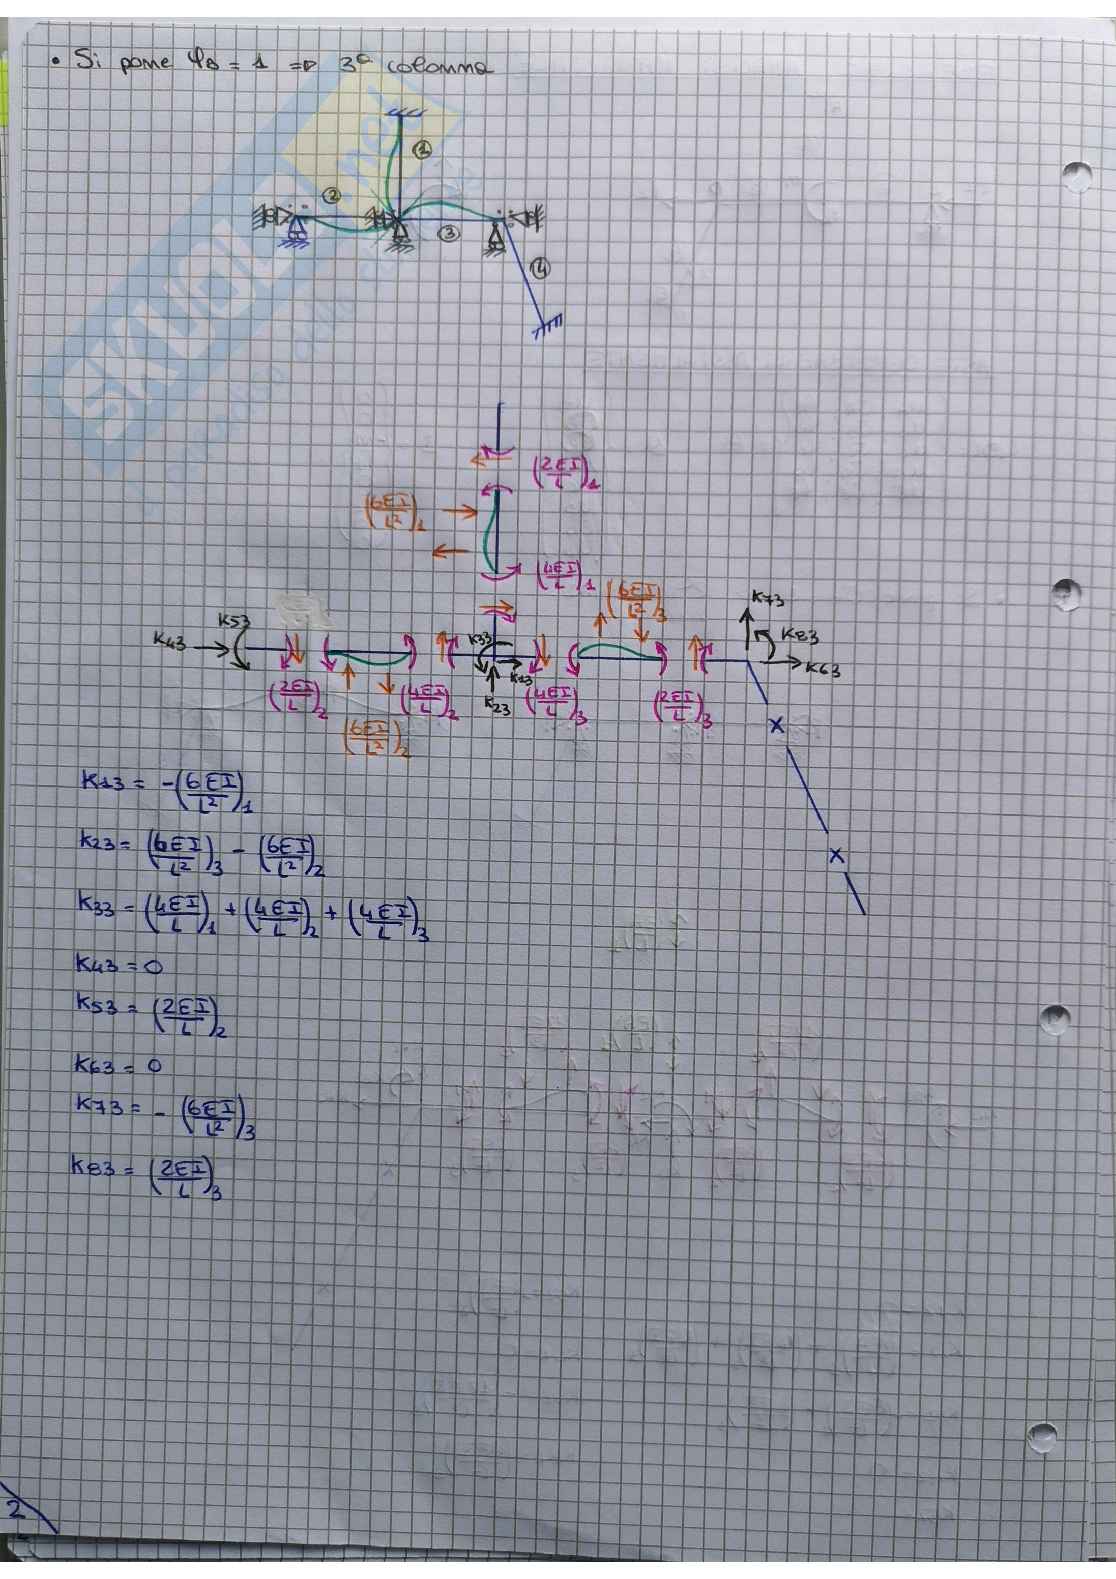 • Si pone φB = 1 ⇒ 3ª colonna
SKUOLA.net
1
2
3
4
(2EI/L)1
(6EI/L²)1
(4EI/L)1
(6EI/L²)3
K73
K53
K43
K33
K83
K63
K13
K23
(2EI/L)2
(4EI/L)2
(4EI/L)3
(2EI/L)3
(6EI/L²)2
K13 = -(6EI/L²)1
K23 = (6EI/L²)3 - (6EI/L²)2
K33 = (4EI/L)1 + (4EI/L)2 + (4EI/L)3
K43 = 0
K53 = (2EI/L)2
K63 = 0
K73 = - (6EI/L²)3
K83 = (2EI/L)3
2